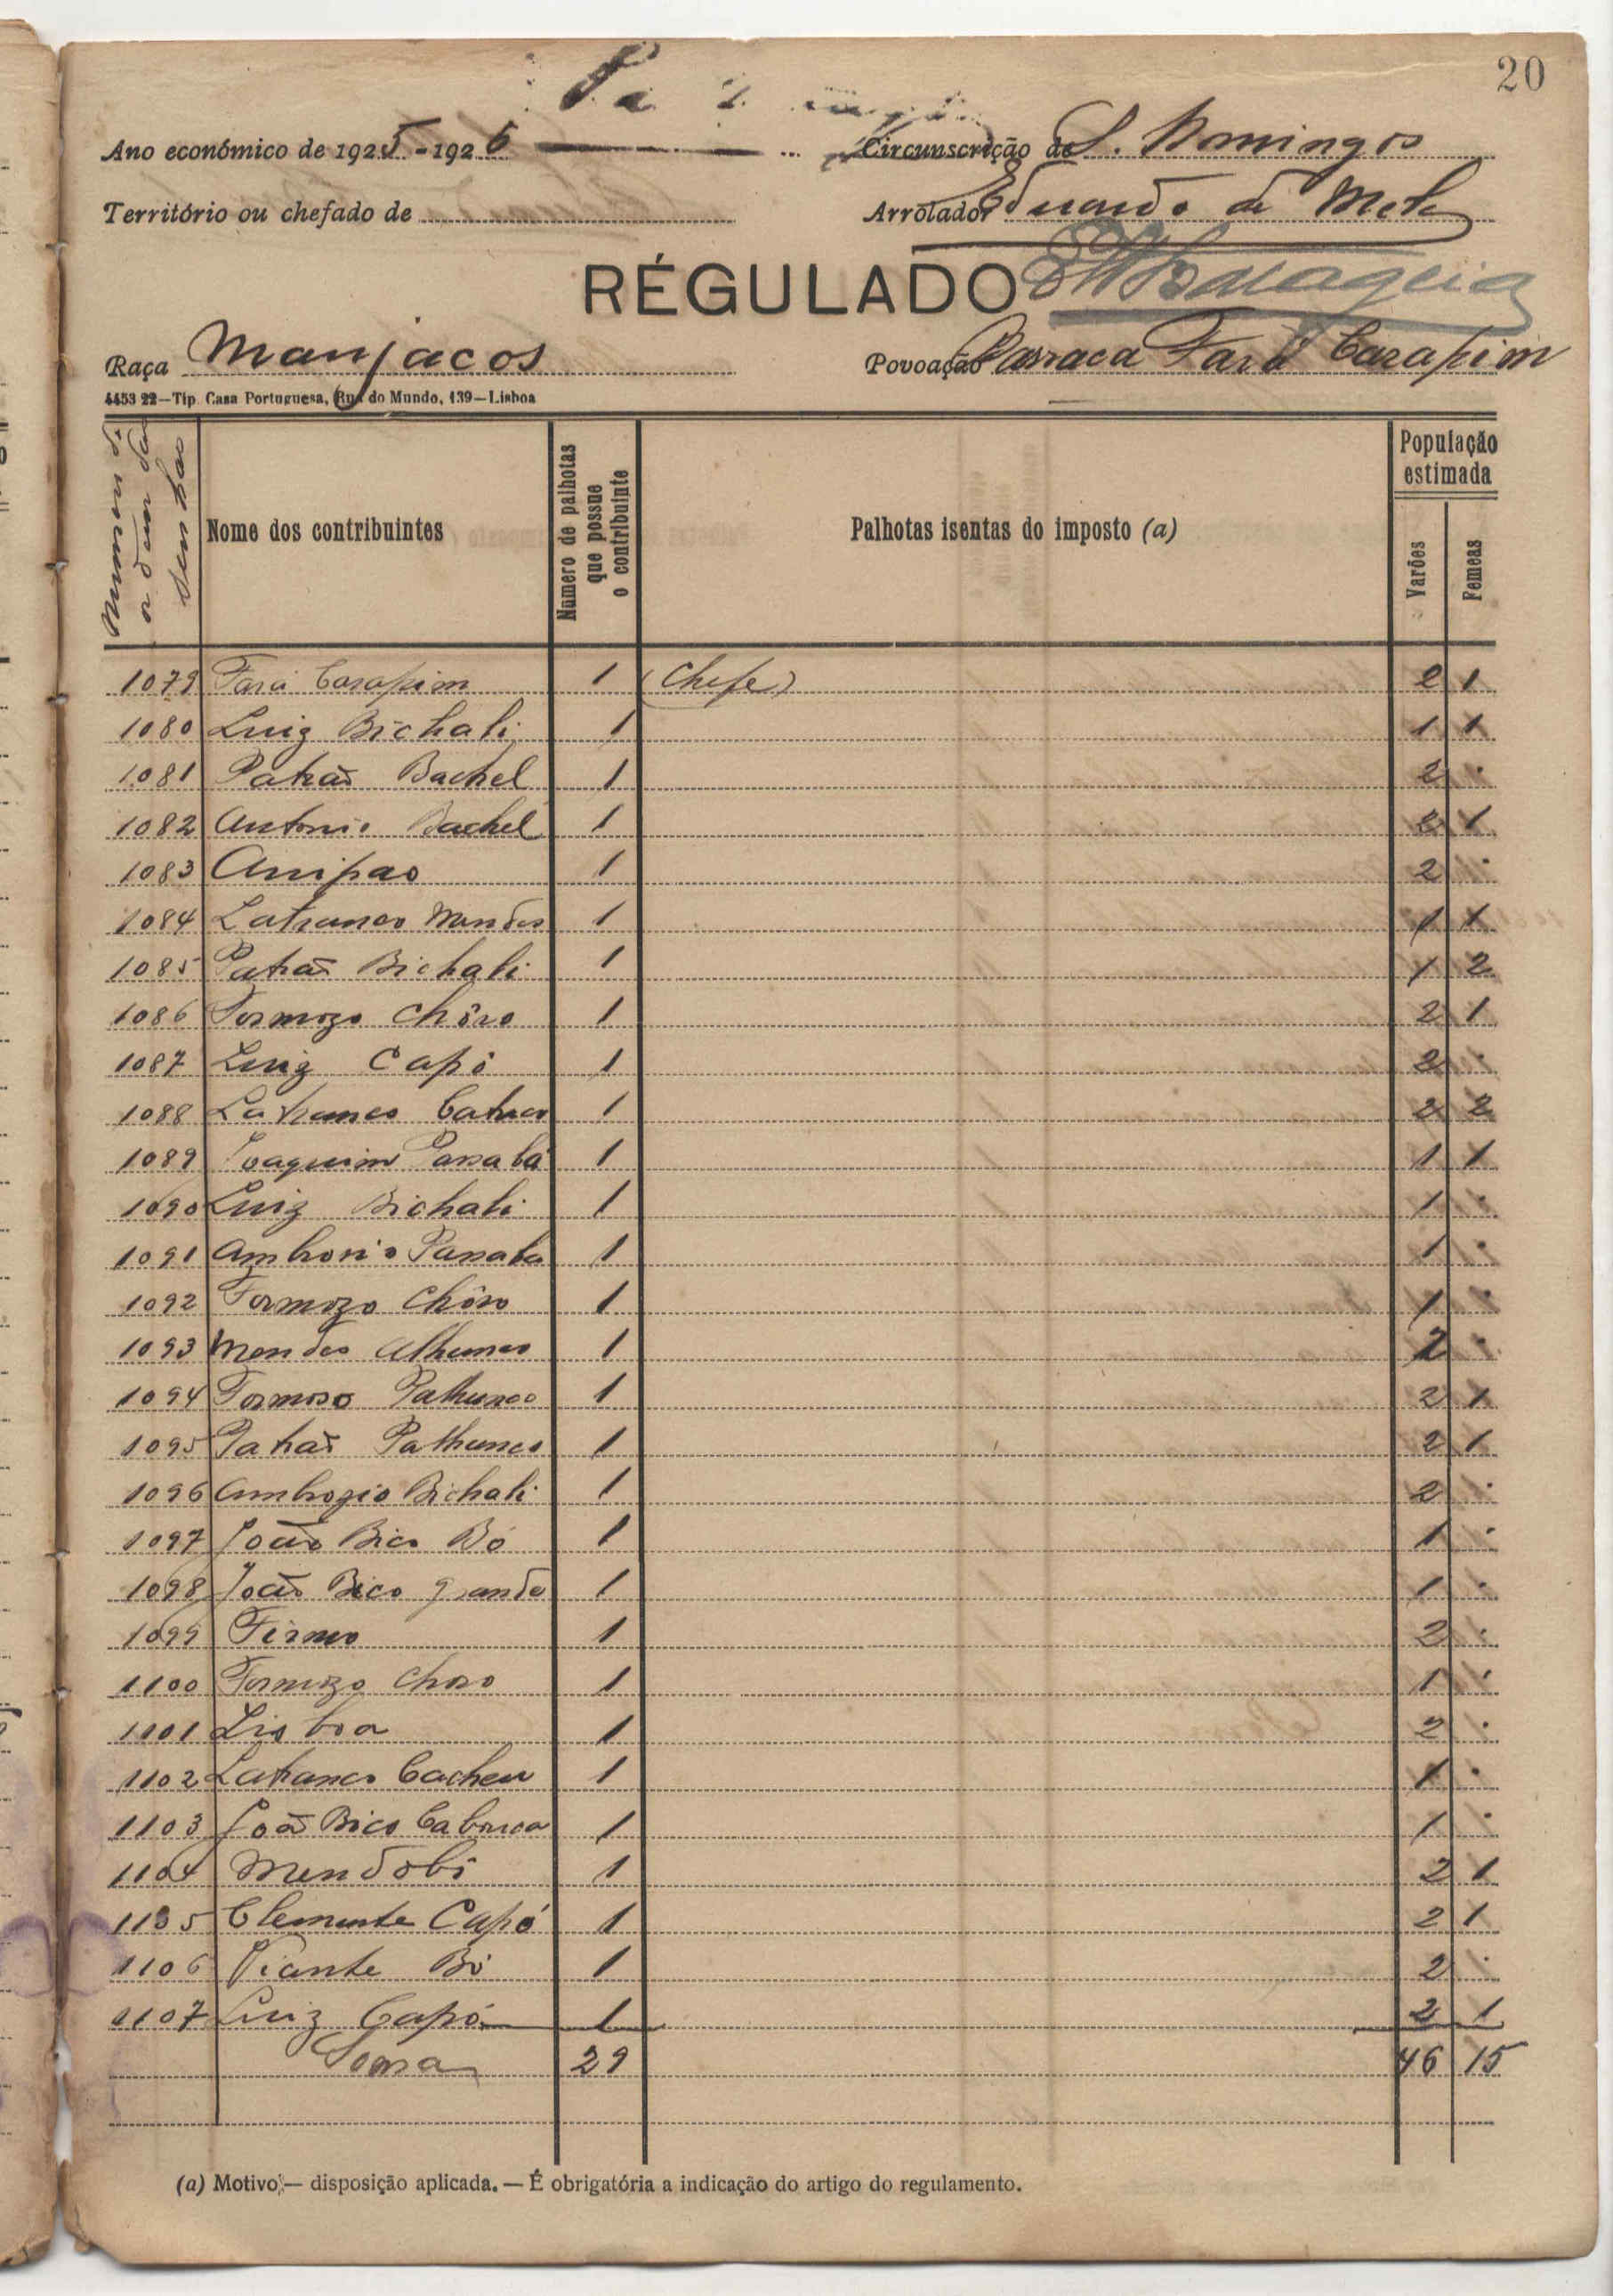 20
Ano económico de 1925-1926 Circunscrição de S. Domingos
Território ou chefado de Arrolador Eduardo de Melo
RÉGULADO
Raça Manjacos Povoação Barraca Fará Carapim
4453 22—Tip. Casa Portuguesa, Rua do Mundo, 139—Lisboa
Nome dos contribuintes Número de palhotas que possue o contribuinte Palhotas isentas do imposto (a) População estimada Varões Femeas
1079 Fará Carapim 1 (Chefe) 2 1
1080 Luiz Bichali 1 1 1
1081 Patrão Bachel 1 2 .
1082 Antonio Bachel 1 2 1
1083 Anipao 1 2 .
1084 Latranco Mendes 1 1 1
1085 Patrão Bichali 1 1 2
1086 Formozo Chôro 1 2 1
1087 Luiz Capó 1 2 .
1088 Latranco 1 2 2
1089 Joaquim Passabá 1 1 1
1090 Luiz Bichali 1 1 .
1091 Ambrosio Passaba 1 1 .
1092 Formozo Chôro 1 1 .
1093 Mendes 1 2 .
1094 Formoso Pathunco 1 2 1
1095 Patrão Pathunco 1 2 1
1096 Ambrozio Bichali 1 2 .
1097 João Bico Bó 1 1 .
1098 João Bico grande 1 1 .
1099 Firmo 1 2 .
1100 Formozo Choro 1 1 .
1101 Lisboa 1 2 .
1102 Latranco Cacheu 1 1 .
1103 João Bico Cabouca 1 1 .
1104 Mendobi 1 2 1
1105 Clemente Capó 1 2 1
1106 Vicente Bó 1 2 .
1107 Luiz Capó 1 2 1
Soma 29 46 15
(a) Motivo — disposição aplicada. — É obrigatória a indicação do artigo do regulamento.